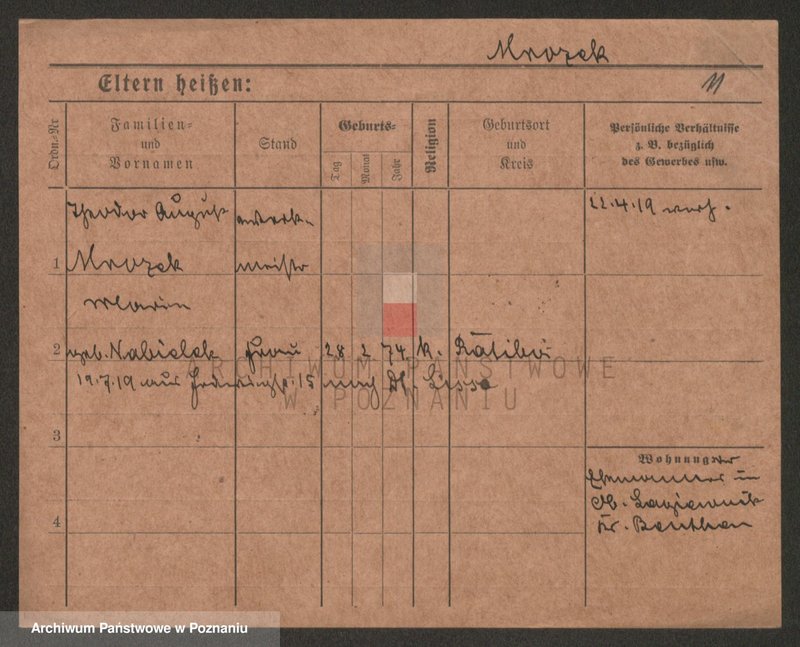 Mrozek
Eltern heißen:
Ordn.-Nr
Familien-
und
Vornamen
Stand
Geburts-
Tag
Monat
Jahr
Religion
Geburtsort
und
Kreis
Persönliche Verhältnisse
z. B. bezüglich
des Gewerbes usw.
Theodor August
22.4.19
1 Mrozek meister
Maria
2 geb. Nabielek Frau 28 2 74 K. Ratibor
19.7.19 aus 15 nach Dt. Lissa
3
Wohnung
Ehemann in
Ob. Lagiewnik
4
Kr. Beuthen
ARCHIWUM PAŃSTWOWE
W POZNANIU
Archiwum Państwowe w Poznaniu